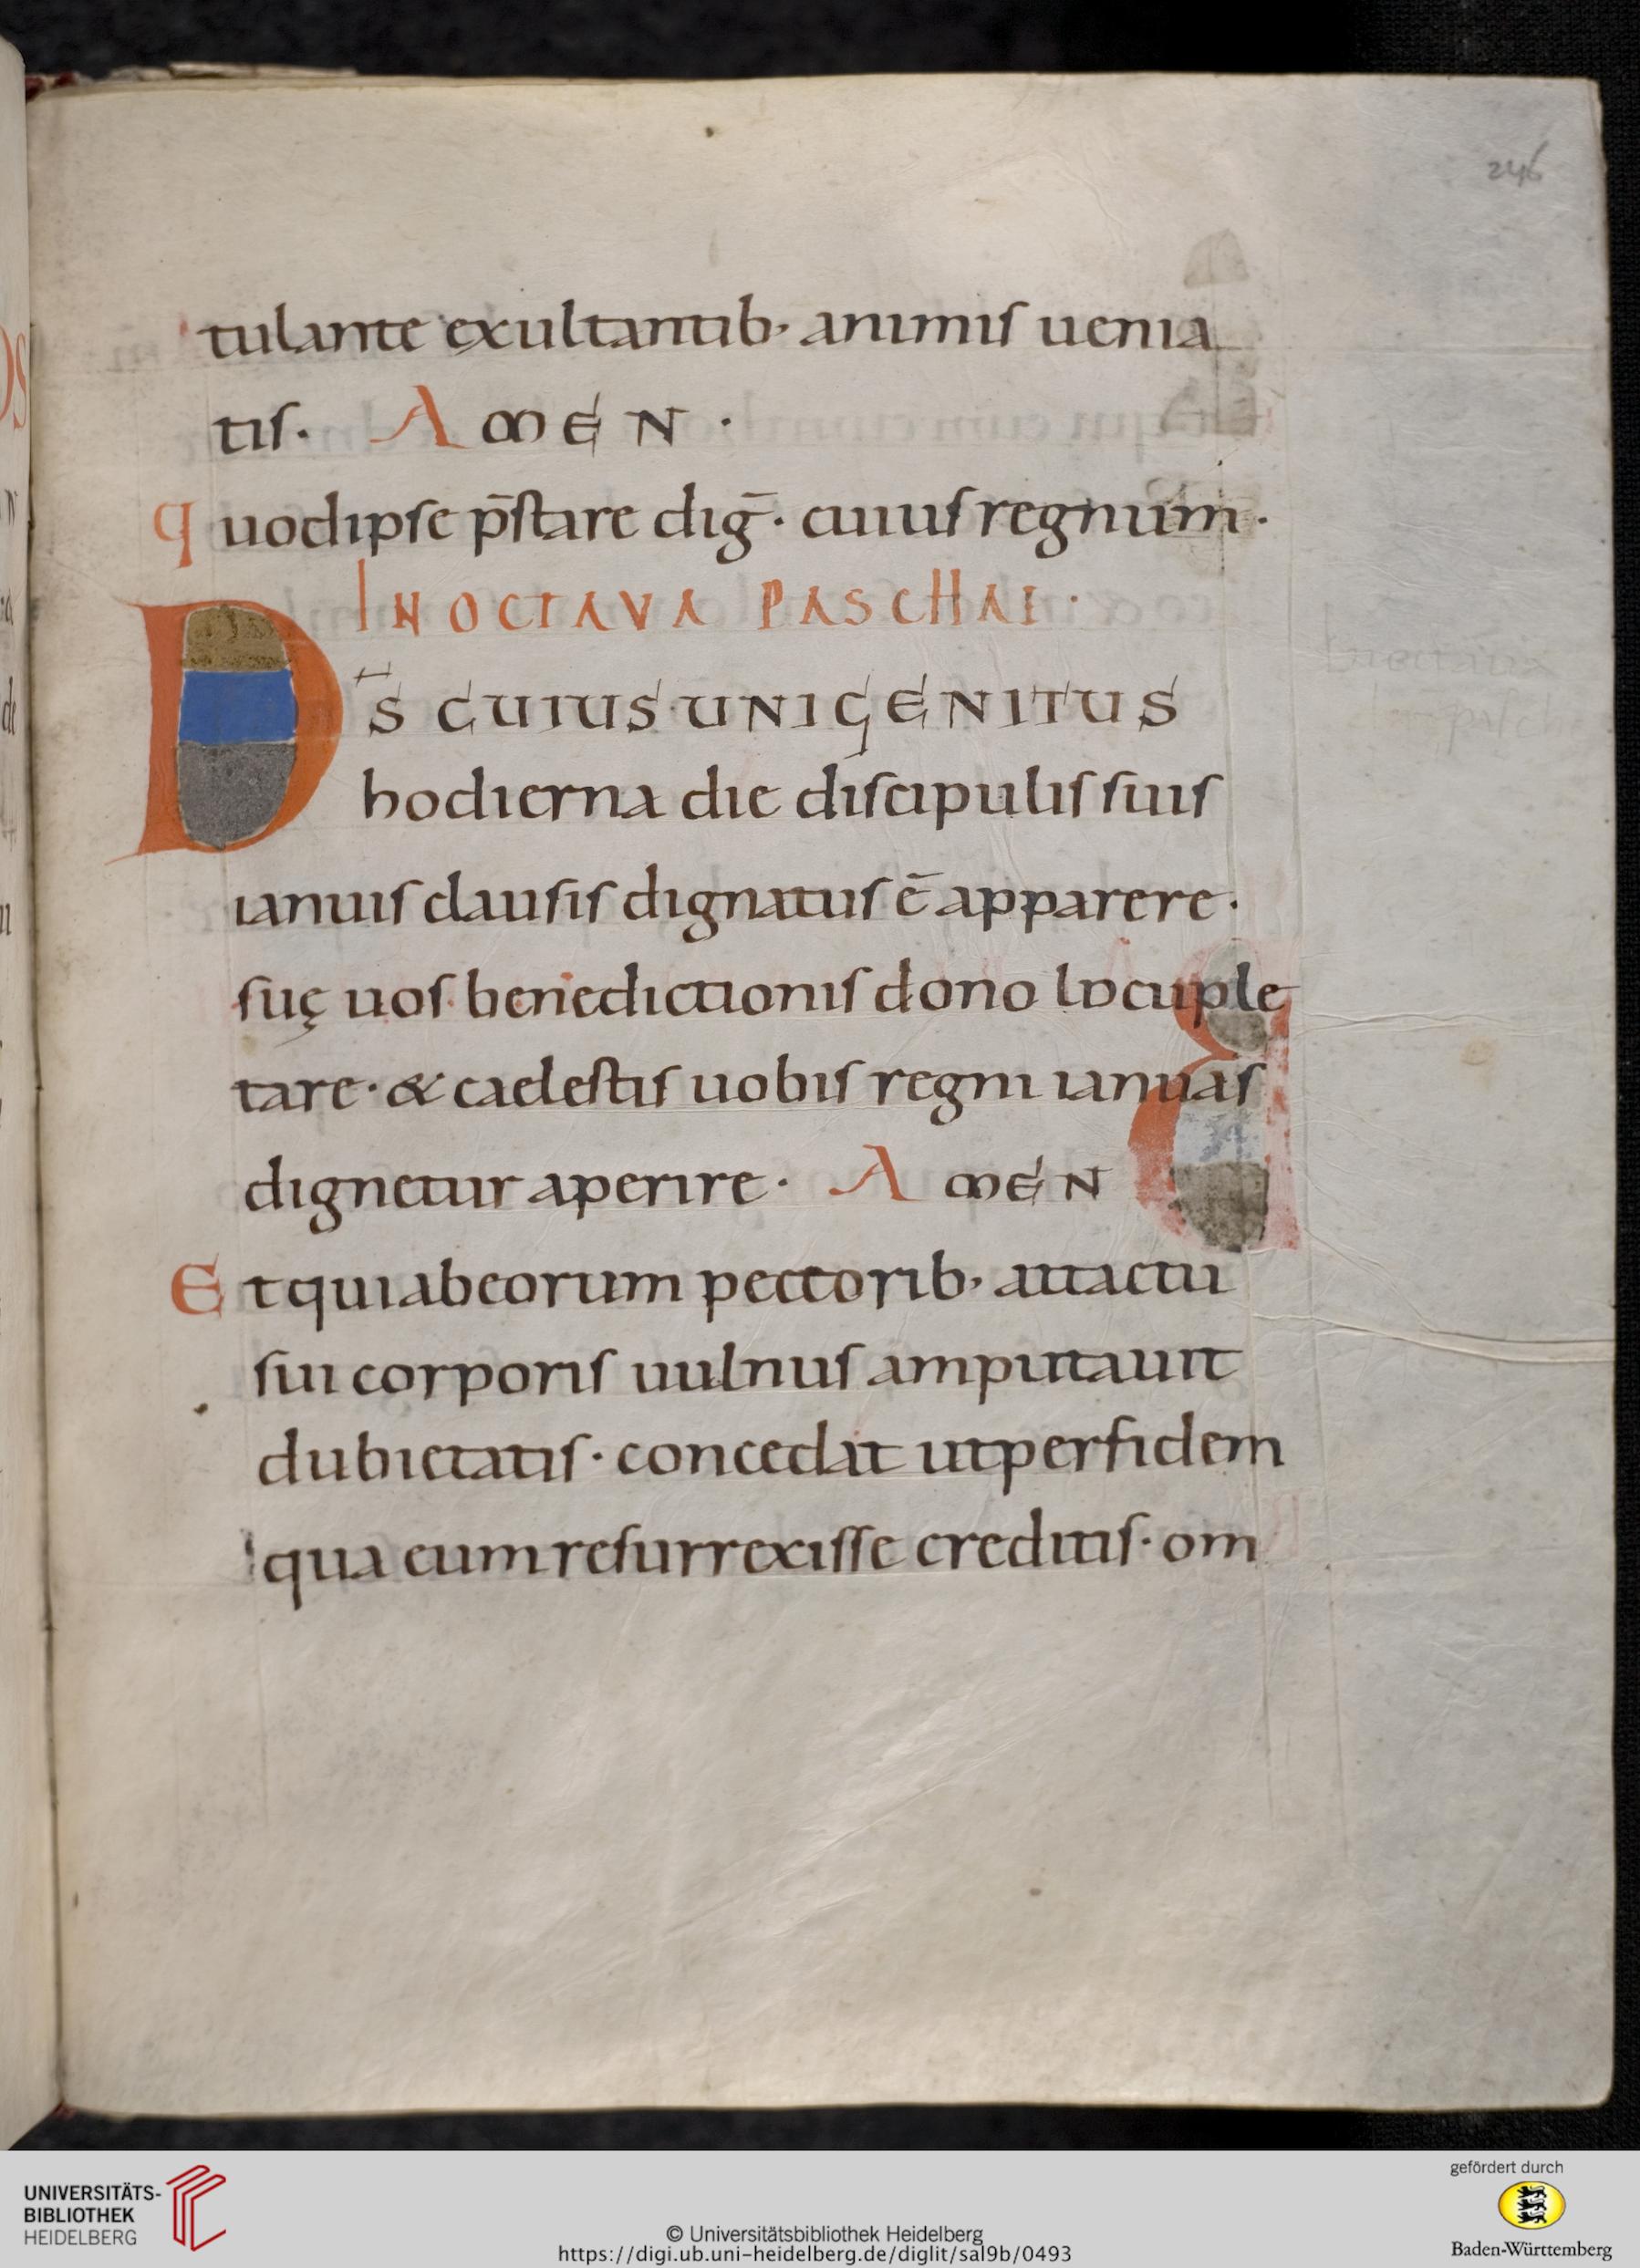 246
tulante exultantib; animis uenia
tis. AMEN.
quodipse p̄stare dig̅. cuius regnum.
IN OCTAVA PASCHAE.
D̅S CUIUS UNIGENITUS
hodierna die discipulis suis
ianuis clausis dignatus ē apparere.
suę uos benedictionis dono locuple
tare. & caelestis uobis regni ianuas
dignetur aperire. AMEN
Et quiabeorum pectorib; attactu
sui corporis uulnus amputauit
dubietatis. concedat utperfidem
qua eum resurrexisse creditis. om
UNIVERSITÄTS-
BIBLIOTHEK
HEIDELBERG
© Universitätsbibliothek Heidelberg
https://digi.ub.uni-heidelberg.de/diglit/sal9b/0493
gefördert durch
Baden-Württemberg